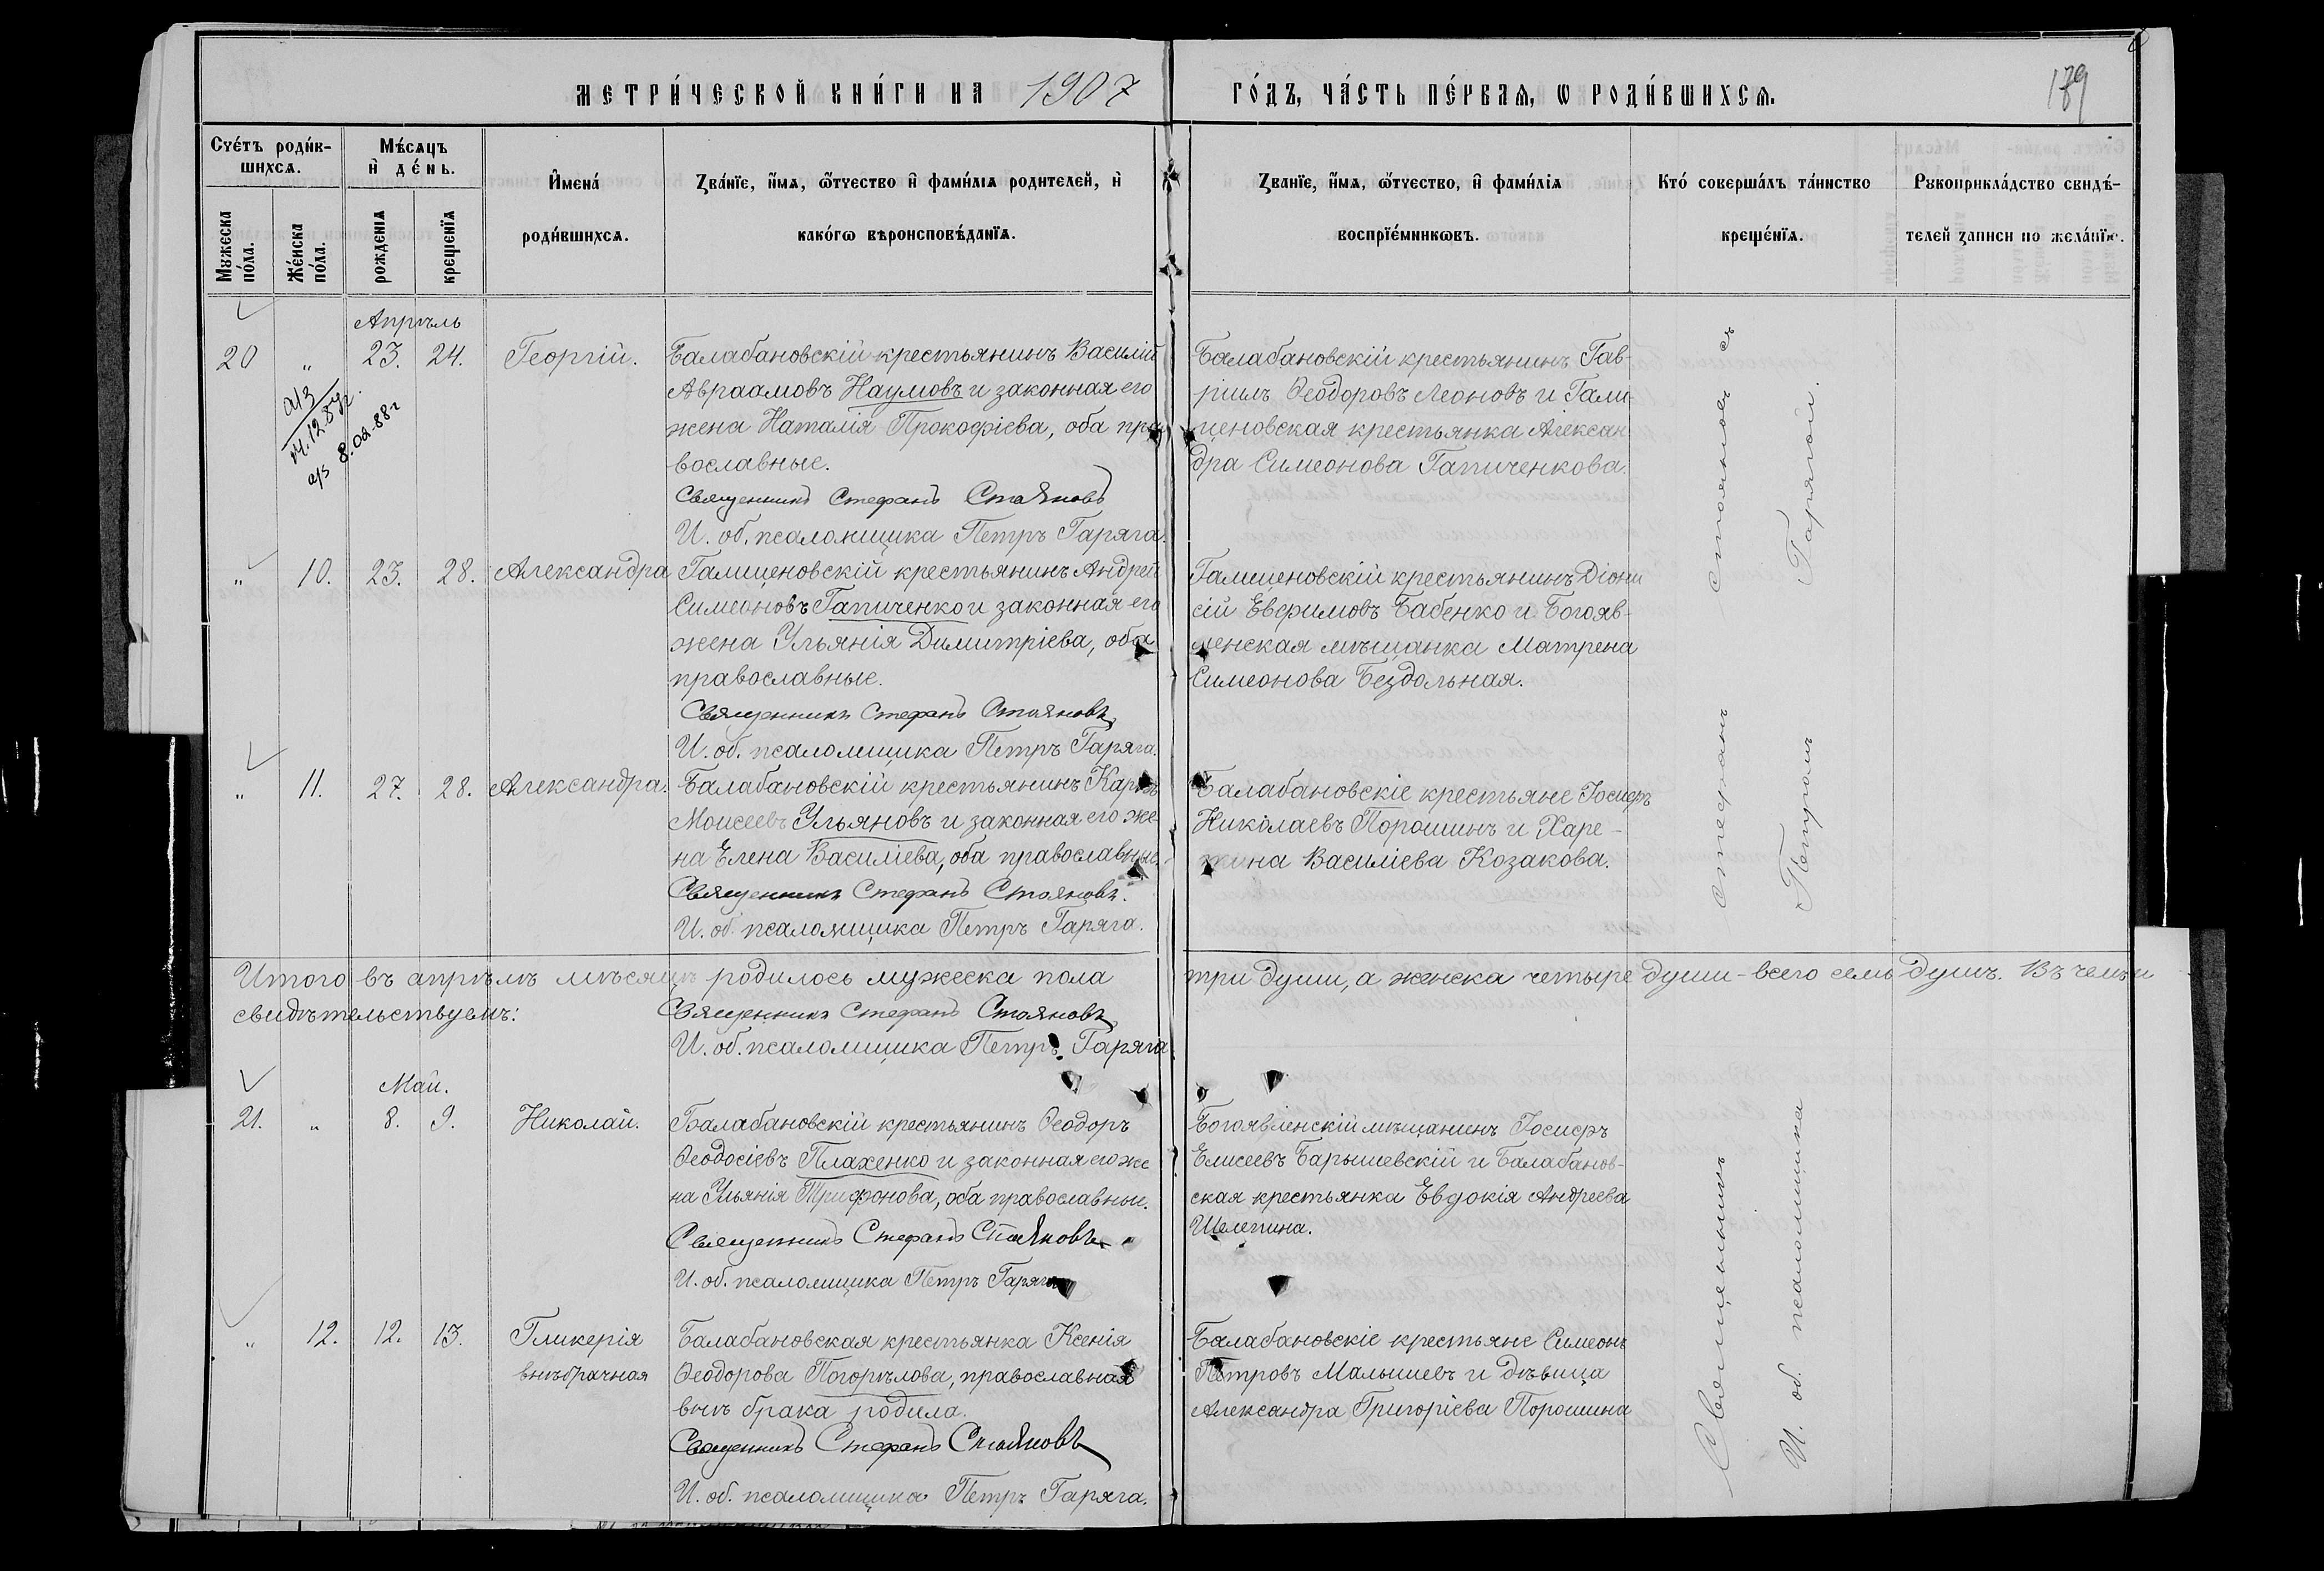 МЕТРИ́ЧЕСКОЙ КНИ́ГИ НА 1907 ГО́ДЪ, ЧА́СТЬ ПЕ́РВАѦ, Ѡ РОДИ́ВШИХСѦ.
179
Сче́тъ роди́в-
шихсѧ.
Мꙋжеска по́ла.
Же́нска по́ла.
Мѣ́сѧцъ
и҆ де́нь.
рожденїѧ
крещенїѧ
И҆мена́
роди́вшихсѧ.
Зва́нїе, и҆́мѧ, ѻ҆́тчество и҆ фами́лїѧ родителей, и҆
како́гѡ вѣроисповѣ́данїѧ.
Званїе, и҆́мѧ, ѻ҆́тчество, и҆ фами́лїѧ
воспрїе́мникѡвъ.
Кто́ соверша́лъ та́инство
креще́нїѧ.
Рꙋкоприкла́дство свидѣ́-
телей записи по жела́нїю.
Апрѣль
20 „ 23. 24. Георгій.
14.12.87г.
8.02.88г
Балабановскій крестьянинъ Василій
Авраамовъ Наумовъ и законная его
жена Наталія Прокофіева, оба пра
вославные.
Священникъ Стефанъ Стояновъ
И. об. псаломщика Петръ Гаряга.
Балабановскій крестьянинъ Гав-
ріилъ Ѳеодоровъ Леоновъ и Гали-
циновская крестьянка Алексан
дра Симеонова Гапиченкова.
„ 10. 23. 28. Александра
Галициновскій крестьянинъ Андрей
Симеоновъ Гапиченко и законная его
жена Ульянія Димитріева, оба
православные.
Священникъ Стефанъ Стояновъ
И. об. псаломщика Петръ Гаряга.
Галициновскій крестьянинъ Діони
сій Евфимовъ Бабенко и Богояв-
ленская мѣщанка Матрена
Симеонова Бездольная.
„ 11. 27. 28. Александра.
Балабановскій крестьянинъ Карпъ
Моисеевъ Ульяновъ и законная его же
на Елена Василіева, оба православные.
Священникъ Стефанъ Стояновъ.
И. об. псаломщика Петръ Гаряга.
Балабановскіе крестьяне Іосифъ
Николаевъ Порошинъ и Харе-
тина Василіева Козакова.
Итого въ апрѣлѣ мѣсяцѣ родилось мужеска пола три души, а женска четыре души - всего семь душъ. Въ чемъ и
свидѣтельствуемъ: Священникъ Стефанъ Стояновъ
И. об. псаломщика Петръ Гаряга
Май.
21. „ 8. 9. Николай.
Балабановскій крестьянинъ Ѳеодоръ
Ѳеодосіевъ Плахенко и законная его же
на Ульянія Трифонова, оба православные.
Священникъ Стефанъ Стояновъ
И. об. псаломщика Петръ Гаряга
Богоявленскій мѣщанинъ Іосифъ
Елисеевъ Барышевскій и Балабанов-
ская крестьянка Евдокія Андреева
Шелепина.
„ 12. 12. 13. Гликерія
внѣбрачная
Балабановская крестьянка Ксенія
Ѳеодорова Погорѣлова, православная
внѣ брака родила.
Священникъ Стефанъ Стояновъ
И. об. псаломщика Петръ Гаряга.
Балабановскіе крестьяне Симеонъ
Петровъ Малышевъ и дѣвица
Александра Григоріева Порошина
Священникъ Стефанъ Стояновъ съ
И. об. псаломщика Петромъ Гарягой.